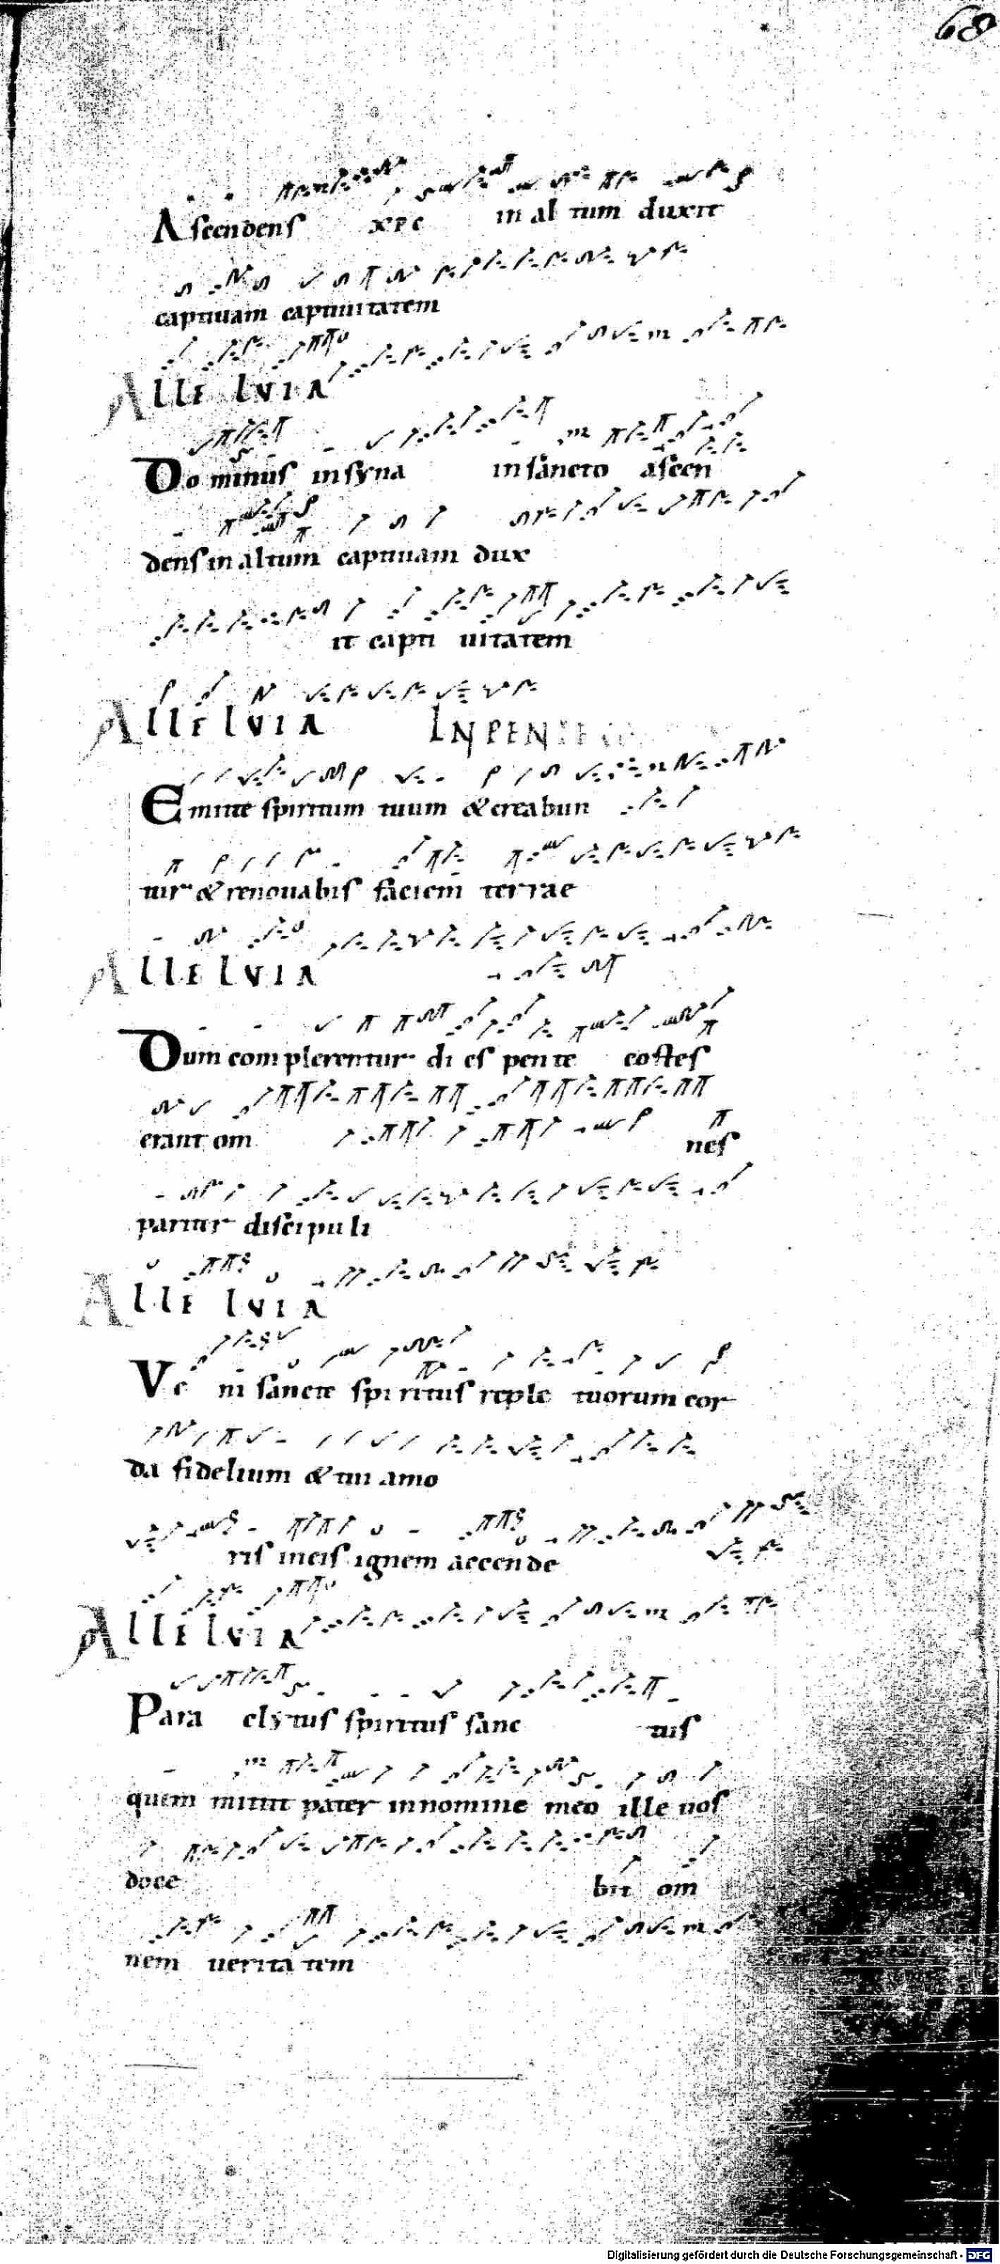 68
Ascendens xpc in altum duxit
captiuam captiuitatem
ALLELVIA
Dominus insyna insancto ascen
dens in altum captiuam dux
it capti uitatem
ALLELVIA IN PENTE
Emitte spiritum tuum & creabun
tur & renouabis faciem terrae
ALLELVIA
Dum complerentur di es pente costes
erant om nes
pariter discipuli
ALLELVIA
Ve ni sancte spiritus reple tuorum cor
da fidelium & tui amo
ris ineis ignem accende
ALLELVIA
Para clytus spiritus sanc tus
quem mittit pater innomine meo ille uos
doce bit om
nem ueritatem
Digitalisierung gefördert durch die Deutsche Forschungsgemeinschaft - DFG